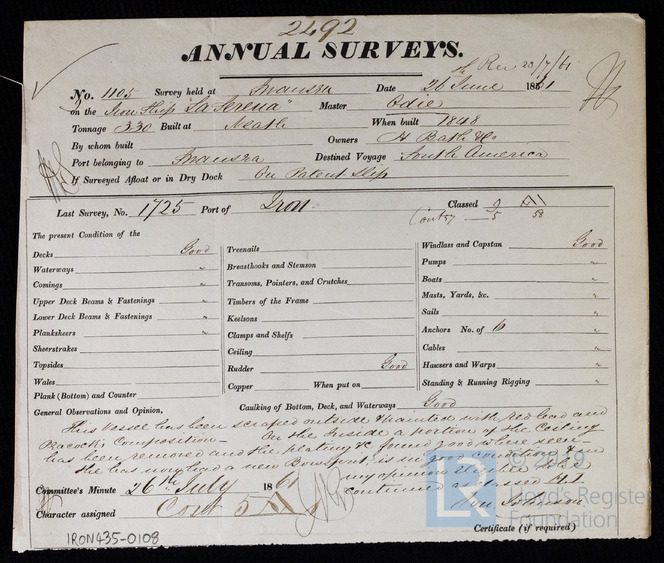 2492
ANNUAL SURVEYS.
Rec 23/7/61
No. 1105 Survey held at Swansea Date 26 June 1861
on the Iron Ship "La Serena" Master Odie
Tonnage 330 Built at Neath When built 1848
By whom built Owners H Bath & Co
Port belonging to Swansea Destined Voyage South America
If Surveyed Afloat or in Dry Dock On Patent Slip
Last Survey, No. 1725 Port of Iron Classed 9 A1
Cont 57 5 58
The present Condition of the
Decks Good
Waterways "
Comings "
Upper Deck Beams & Fastenings "
Lower Deck Beams & Fastenings "
Planksheers "
Sheerstrakes
Topsides
Wales
Plank (Bottom) and Counter
Treenails
Breasthooks and Stemson
Transoms, Pointers, and Crutches
Timbers of the Frame
Keelsons
Clamps and Shelfs
Ceiling
Rudder Good
Copper When put on
Windlass and Capstan Good
Pumps "
Boats "
Masts, Yards, &c. "
Sails "
Anchors No. of 6 "
Cables "
Hawsers and Warps "
Standing & Running Rigging "
General Observations and Opinion, Caulking of Bottom, Deck, and Waterways Good
This vessel has been scraped outside & painted with red lead and
Peacock's Composition - On the Inside a portion of the Ceiling
has been removed and the plating &c found good where seen -
She has now had a new Bowsprit, is in good condition & in
my opinion eligible to be
continued as classed A1
Committee's Minute 26th July 1861
Character assigned Cont 5 A1
Certificate (if required)
IRON435-0108
© 2019
Lloyd's Register
Foundation